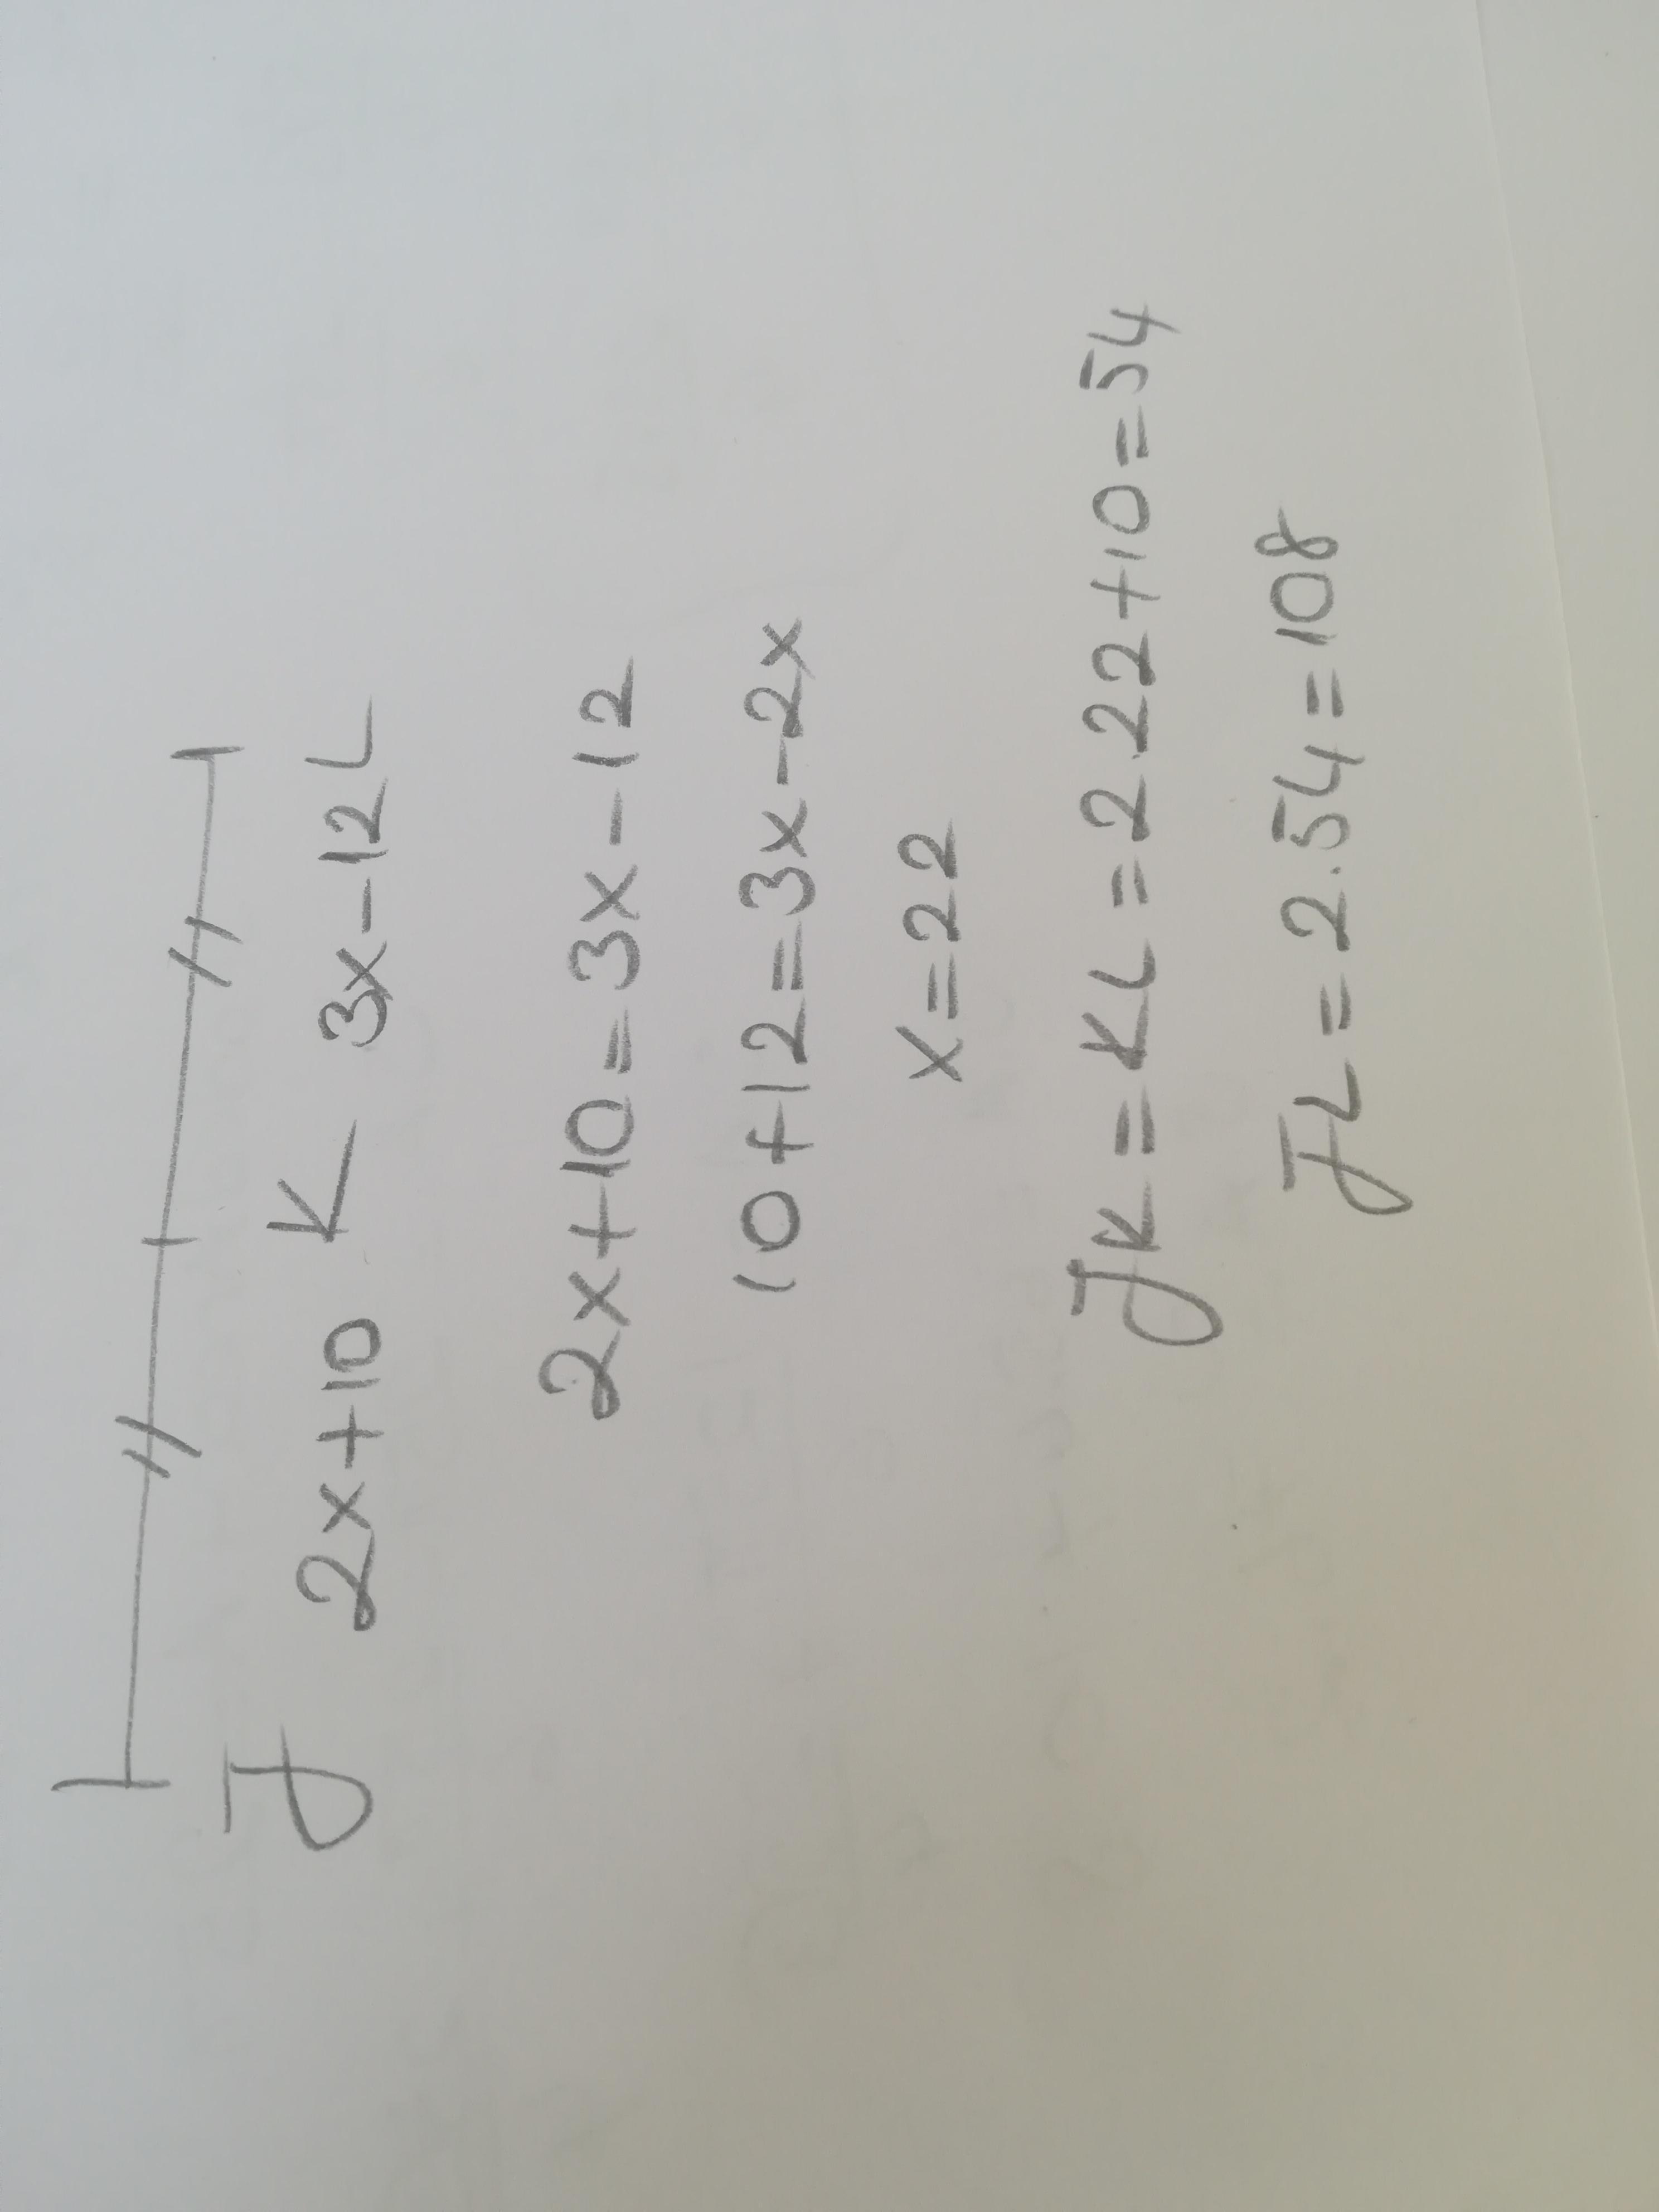 J 2x+10 K 3x-12 L
2x+10=3x-12
10+12=3x-2x
x=22
JK=KL=2.22+10=54
JL=2.54=108